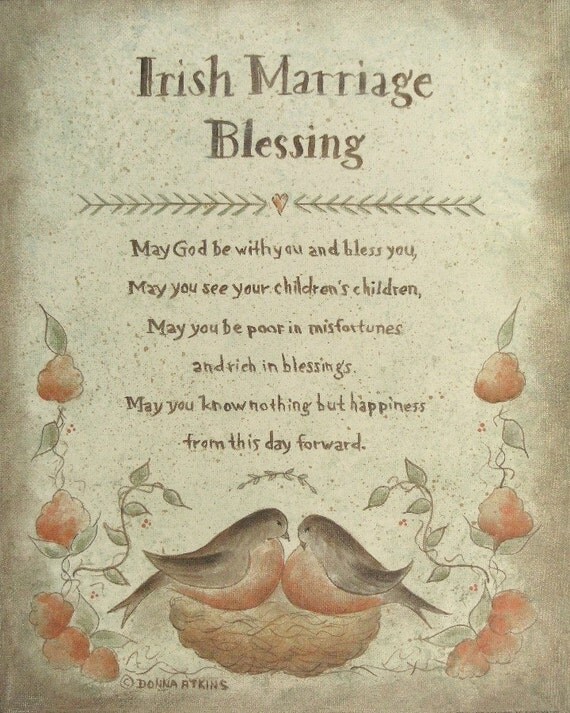 Irish Marriage
Blessing
May God be with you and bless you,
May you see your children's children,
May you be poor in misfortunes
and rich in blessings.
May you know nothing but happiness
from this day forward.
© DONNA ATKINS